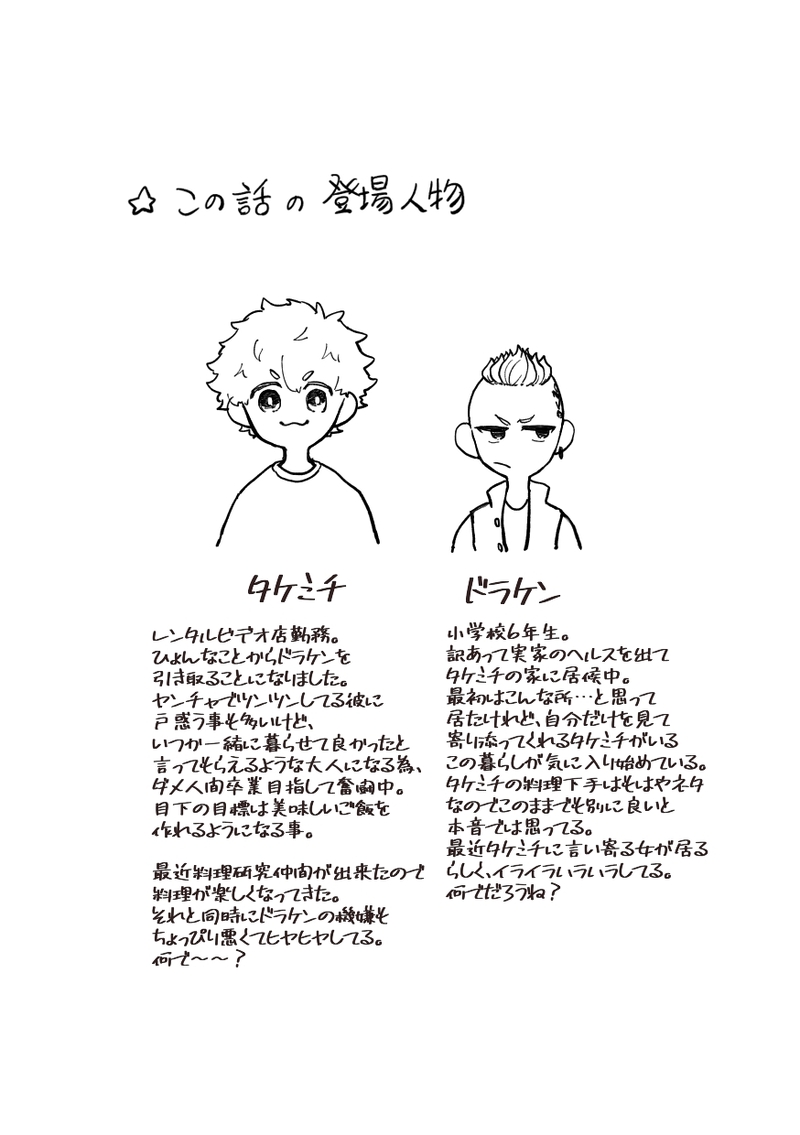 ☆ この話の登場人物
タケミチ
レンタルビデオ店勤務。
ひょんなことからドラケンを
引き取ることになりました。
ヤンチャでツンツンしてる彼に
戸惑う事も多いけど、
いつか一緒に暮らせて良かったと
言ってもらえるような大人になる為、
ダメ人間卒業目指して奮闘中。
目下の目標は美味しいご飯を
作れるようになる事。
最近料理研究仲間が出来たので
料理が楽しくなってきた。
それと同時にドラケンの機嫌も
ちょっぴり悪くてヒヤヒヤしてる。
何で〜〜?
ドラケン
小学校6年生。
訳あって実家のヘルスを出て
タケミチの家に居候中。
最初はこんな所…と思って
居たけれど、自分だけを見て
寄り添ってくれるタケミチがいる
この暮らしが気に入り始めている。
タケミチの料理下手はそはやネタ
なのでこのままでも別に良いと
本音では思ってる。
最近タケミチに言い寄る女が居る
らしく、イライライライラしてる。
何でだろうね?